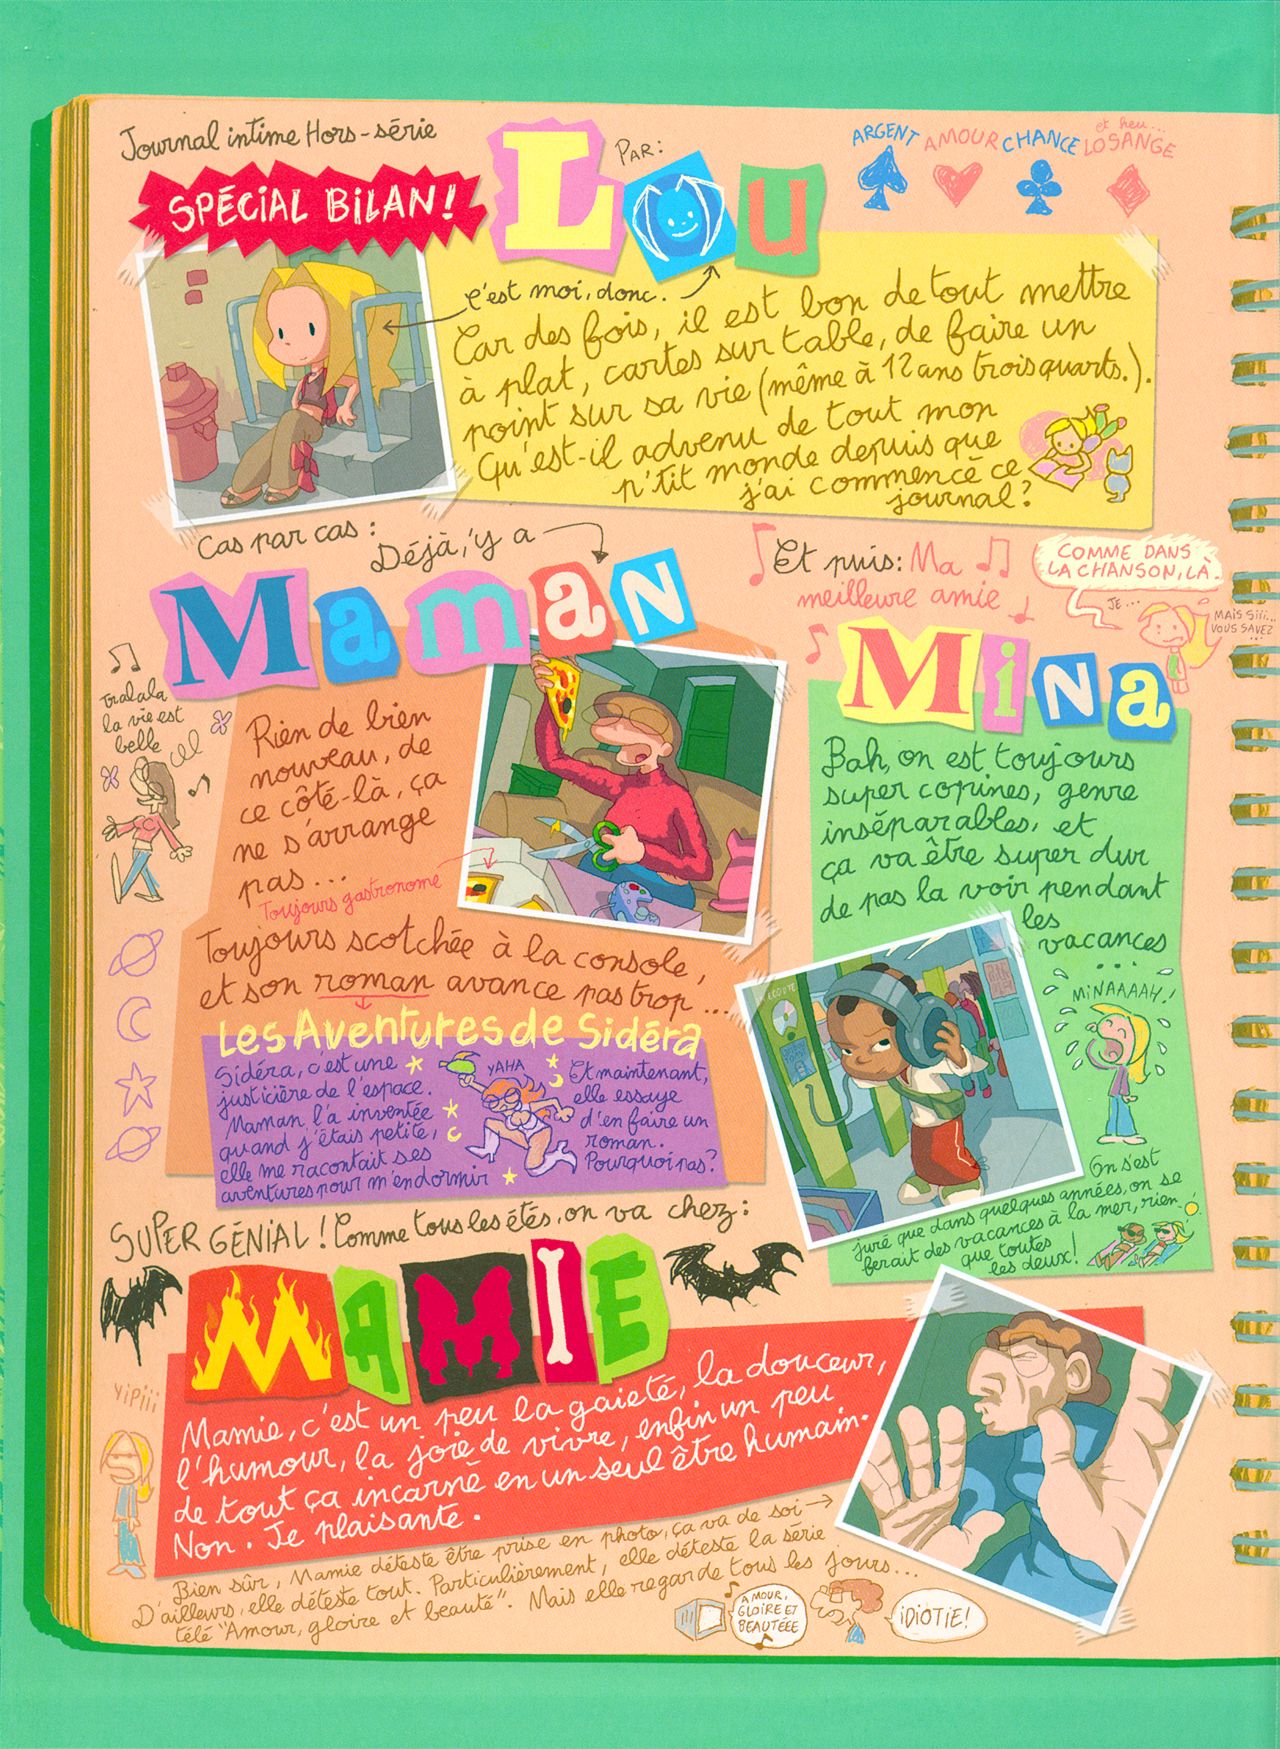 Journal intime Hors-série
SPÉCIAL BILAN!
PAR:
LOU
ARGENT
AMOUR
CHANCE
et heu...
LOSANGE
C'est moi, donc.
Car des fois, il est bon de tout mettre
à plat, cartes sur table, de faire un
point sur sa vie (même à 12 ans trois quarts.).
Qu'est-il advenu de tout mon
p'tit monde depuis que
j'ai commencé ce
journal?
Cas par cas:
Déjà, 'y a
Maman
Tralala
la vie est
belle
Rien de bien
nouveau, de
ce côté-là, ça
ne s'arrange
pas...
Toujours gastronome
Toujours scotchée à la console,
et son roman avance pas trop...
Les Aventures de Sidéra
Sidéra, c'est une
justicière de l'espace.
Maman l'a inventée
quand j'étais petite,
elle me racontait ses
aventures pour m'endormir
YAHA
Et maintenant,
elle essaye
d'en faire un
roman.
Pourquoi pas?
Et puis: Ma
meilleure amie
COMME DANS
LA CHANSON, LÀ.
JE...
MAIS SIII...
VOUS SAVEZ
MiNa
Bah, on est toujours
super copines, genre
inséparables, et
ça va être super dur
de pas la voir pendant
les
vacances
...
ECOUTE
MINAAAAH!
On s'est
juré que dans quelques années, on se
ferait des vacances à la mer, rien
que toutes
les deux!
SUPER GÉNIAL! Comme tous les étés, on va chez:
MAMIE
YIPIII
Mamie, c'est un peu la gaieté, la douceur,
l'humour, la joie de vivre, enfin un peu
de tout ça incarné en un seul être humain.
Non. Je plaisante.
Bien sûr, Mamie déteste être prise en photo, ça va de soi
D'ailleurs, elle déteste tout. Particulièrement, elle déteste la série
télé "Amour, gloire et beauté". Mais elle regarde tous les jours...
AMOUR,
GLOIRE ET
BEAUTÉEE
IDIOTIE!